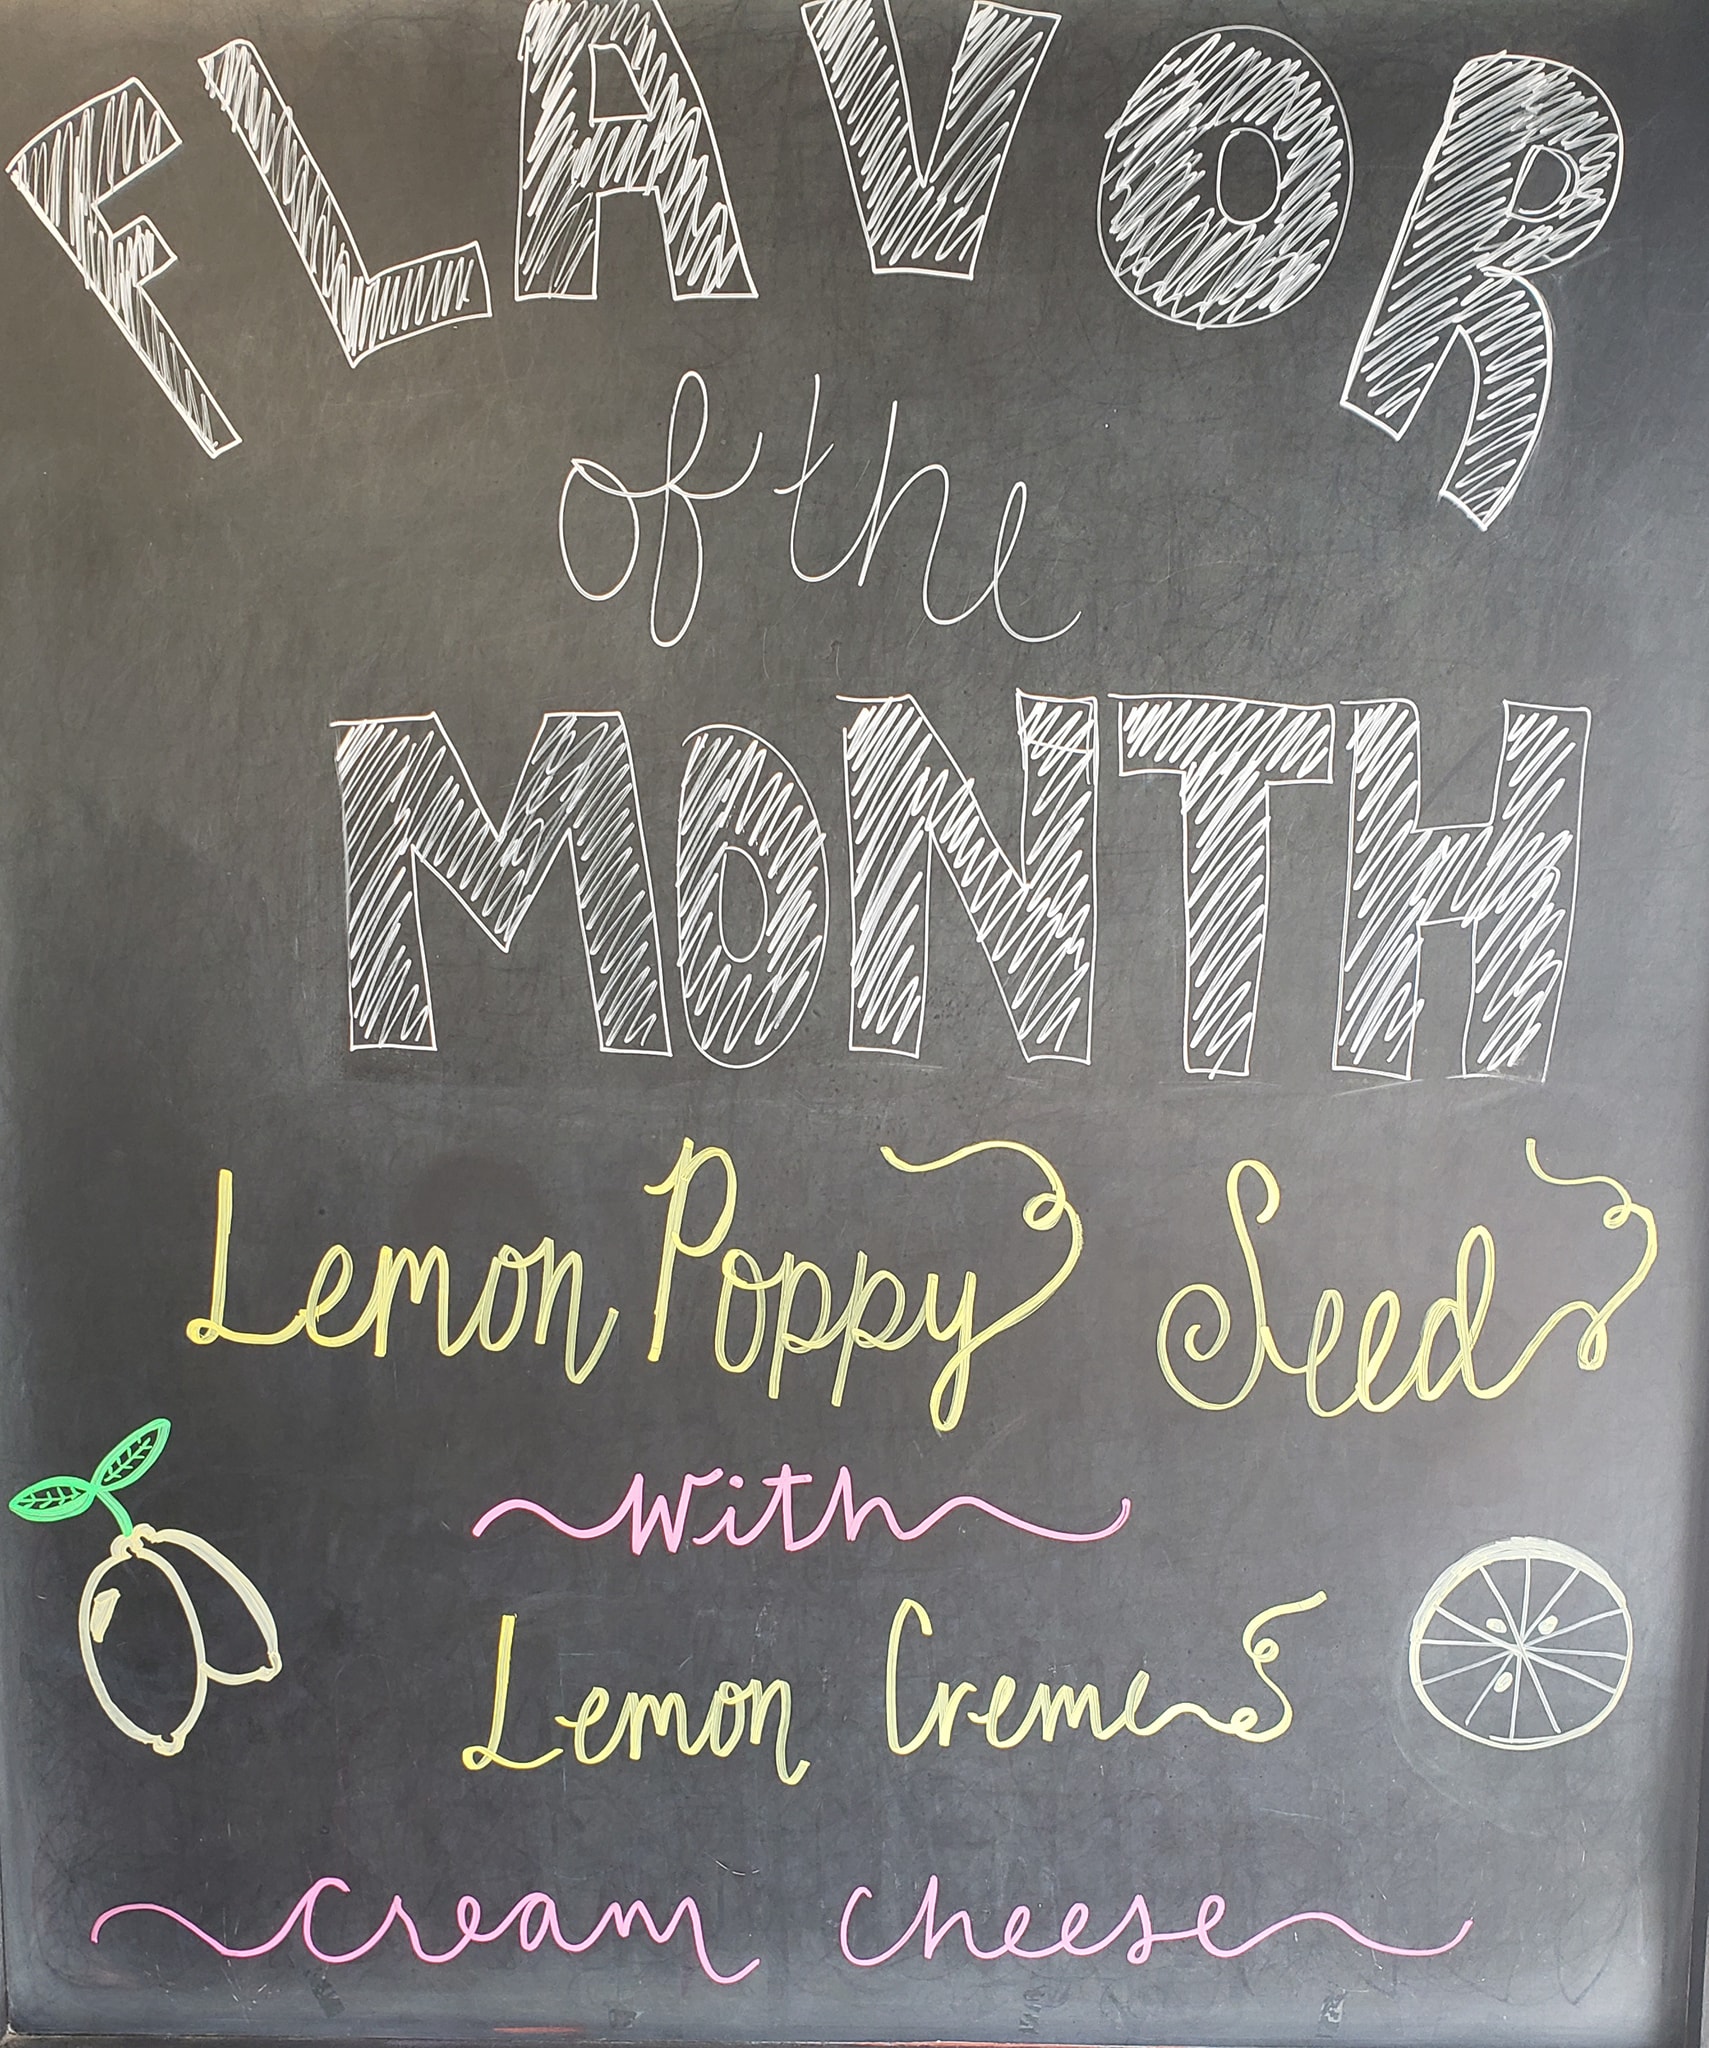 FLAVOR
of the
MONTH
Lemon Poppy Seed
with
Lemon Creme
cream cheese